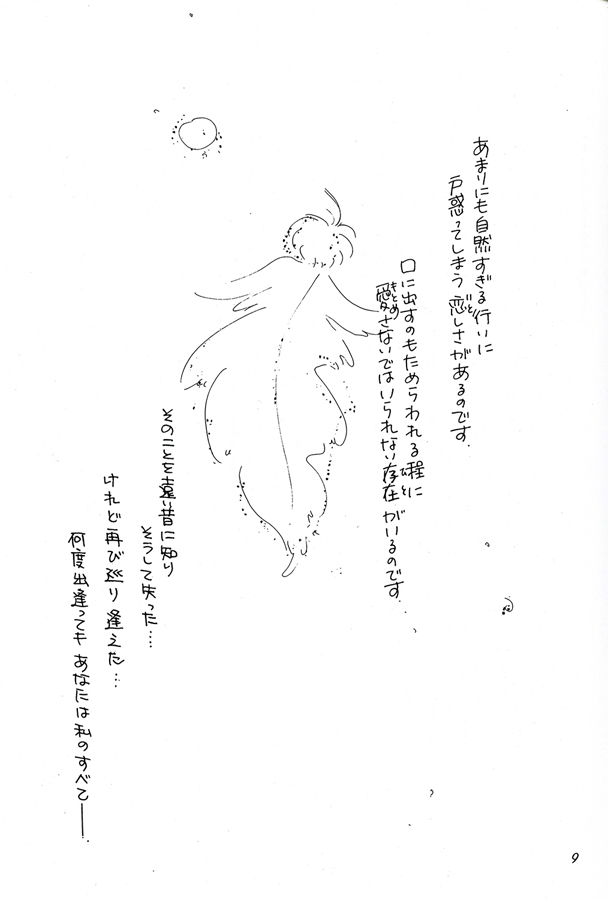 あまりにも自然すぎる行いに
戸惑ってしまう恋しさがあるのです.
口に出すのもためらわれる程に
愛さないではいられない存在がいるのです.
もとめ
ひと
そのことを遠い昔に知り
そうして失った……
けれど再び巡り逢えた…
何度出逢っても あなたは私のすべて――.
9